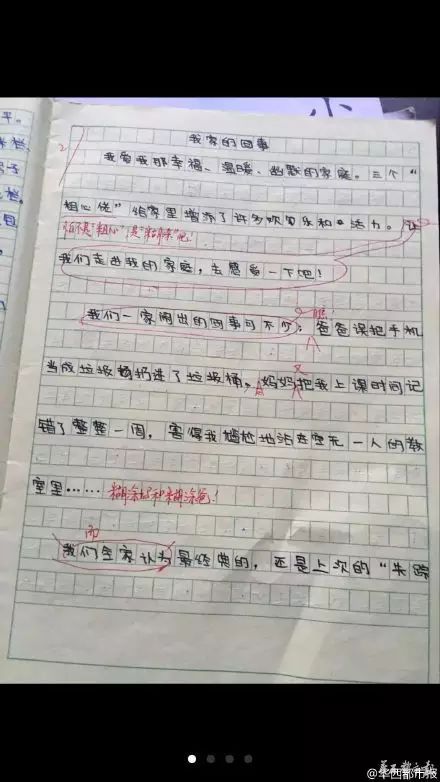 平。
我家的囧事
我爱我那幸福、温暖、幽默的家庭。三个“
粗心佬”给家里增添了许多欢乐和活力。让
怕不是“粗心”是“糊涂”吧!
我们走进我的家庭,去感受一下吧!
我们一家闹出的囧事可不少:爸爸误把手机
又
当成垃圾扔进了垃圾桶,妈妈把我上课时间记
错了整整一周,害得我尴尬地站在空无一人的教
室里……糊涂妈和糊涂爸!
而
我们全家认为最经典的,还是上次的“失踪
@华西都市报